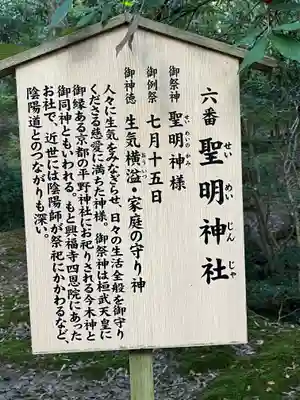 六番 聖明神社
せい めい じん じゃ
御祭神 聖明神様
せいめいのかみ
御例祭 七月十五日
御神徳 生気横溢・家庭の守り神
おういつ
人々に生気をみなぎらせ、日々の生活全般を御守り
くださる慈愛に満ちた神様。御祭神は桓武天皇に
御縁ある京都の平野神社にお祀りされる今木神と
御同神ともいわれる。もと興福寺四恩院にあった
お社で、近世には陰陽師が祭祀にかかわるなど、
陰陽道とのつながりも深い。